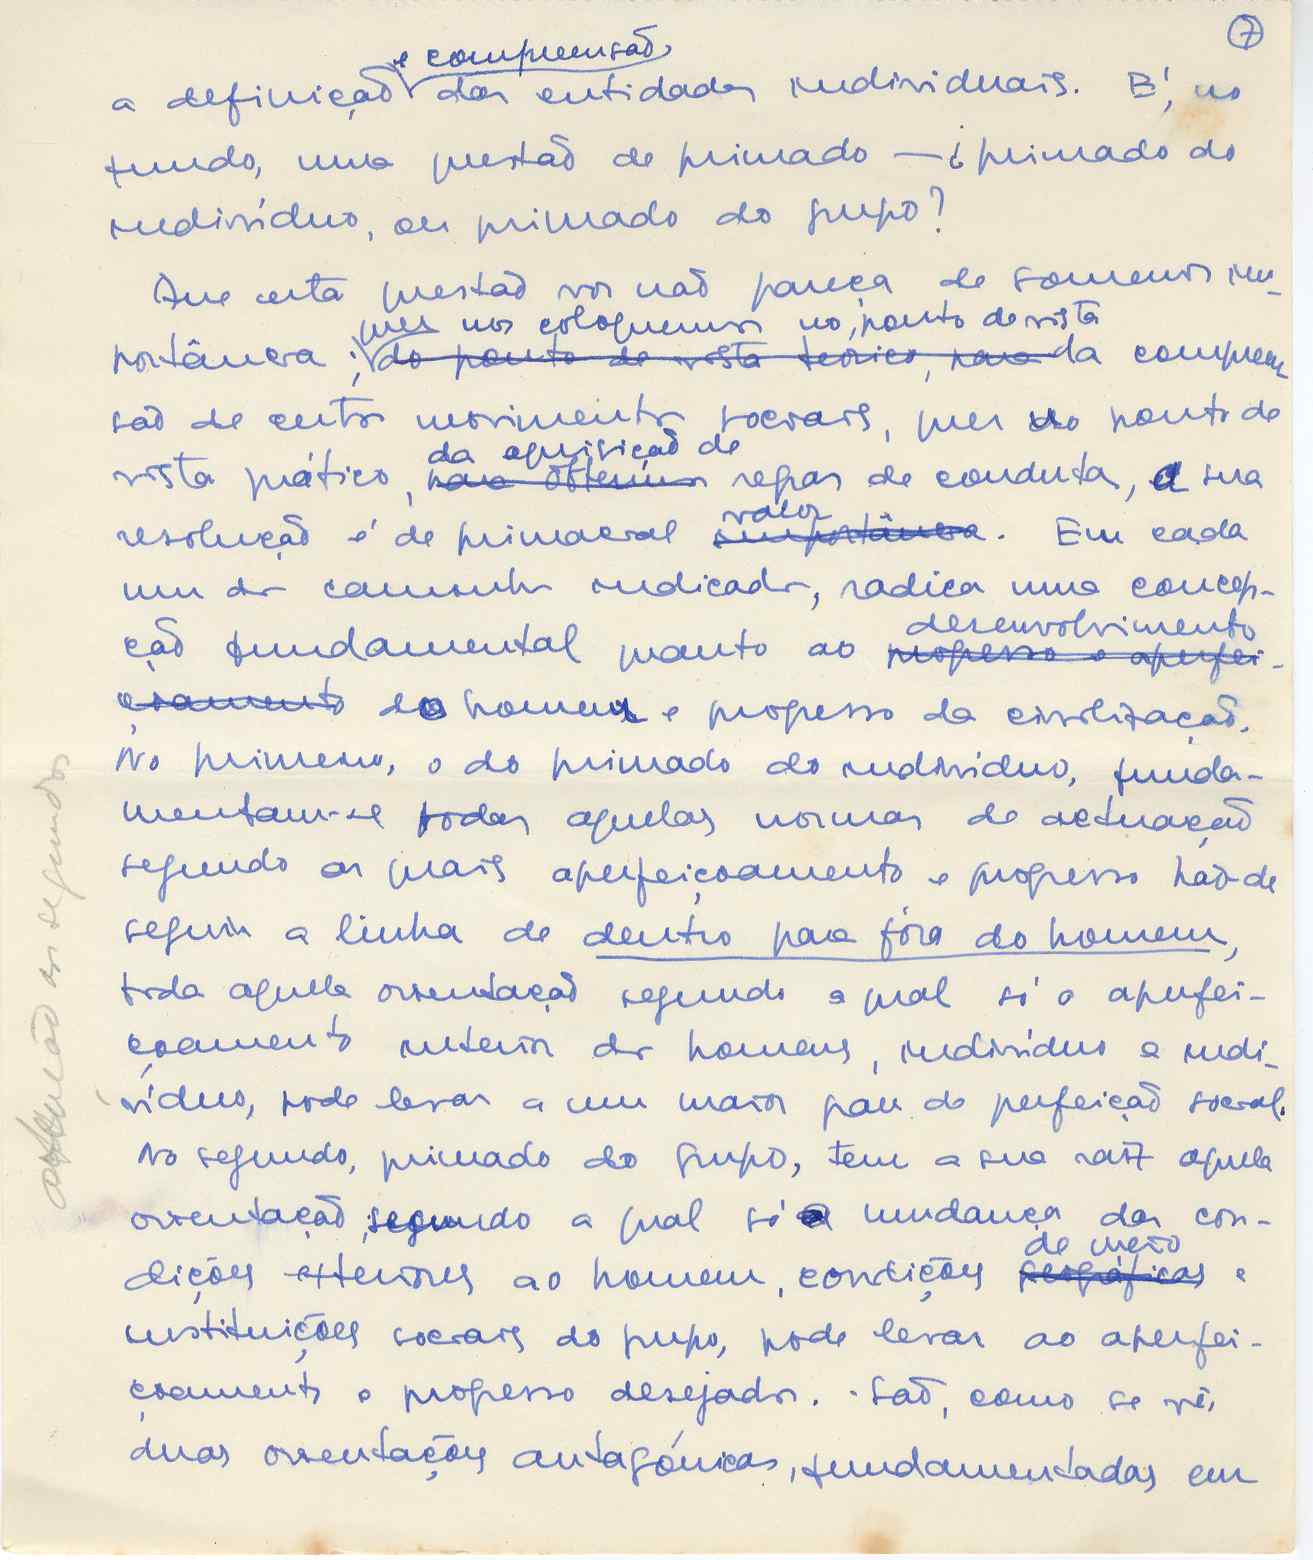 7
e compreensão
a definição das entidades individuais. É, no
fundo, uma questão de primado — ¿primado do
indivíduo, ou primado do grupo?
Que esta questão vos não pareça de somenos im-
quer nos coloquemos no, ponto de vista
portância; do ponto de vista teórico, para da compreen-
são de certos movimentos sociais, quer do ponto de
da aquisição de
vista prático, para obtermos regras de conduta, a sua
valor
resolução é de primacial importância. Em cada
um dos caminhos indicados, radica uma concep-
desenvolvimento
ção fundamental quanto ao progresso e aperfei-
çoamento do homem e progresso da civilização.
No primeiro, o do primado do indivíduo, funda-
mentam-se todas aquelas normas de actuação
segundo as quais aperfeiçoamento e progresso hão-de
seguir a linha de dentro para fóra do homem,
toda aquela orientação segundo a qual só o aperfei-
çoamento interior dos homens, indivíduo a indi-
víduo, pode levar a um maior grau de perfeição social.
No segundo, primado do grupo, tem a sua raiz aquela
orientação segundo a qual só a mudança das con-
de meio
dições exteriores ao homem, condições geográficas e
instituições sociais do grupo, pode levar ao aperfei-
çoamento e progresso desejados. São, como se vê,
duas orientações antagónicas, fundamentadas em
aos segundos